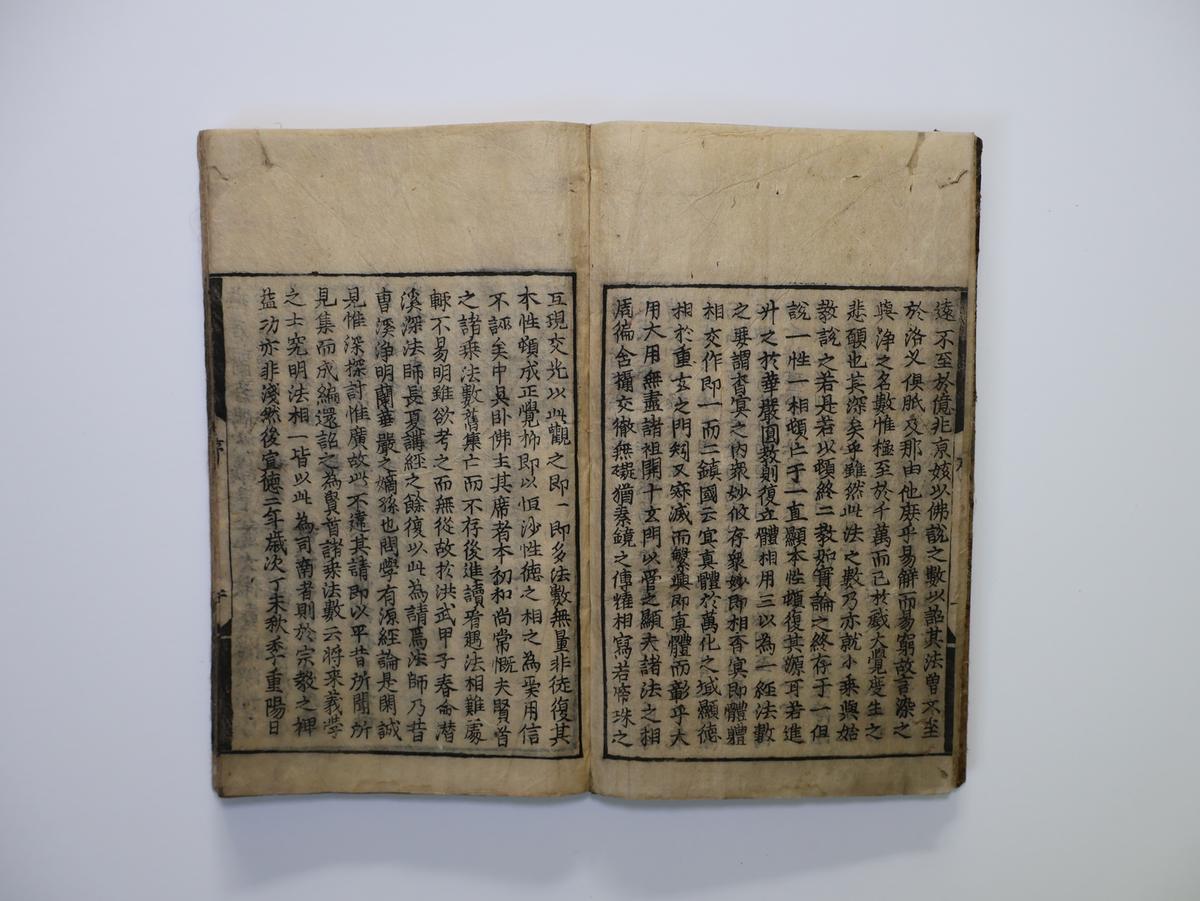 遠不至於億非京姟以佛說之數以詔其法曽不至
於洛义俱胝及那由他庶乎易解而易窮故言染之
與淨之名數惟極至於千萬而已於戲大覺度生之
悲願也其深矣乎雖然此法之數乃亦就小乘與始
教說之若是若以頓終二教如實論之終存于一但
說一性一相頓亡于一直顯本性頓復其源耳若進
升之於華嚴圓教則復立體相用三以為一經法數
之要謂杳冥之內衆妙攸存衆妙即相杳冥即體體
相交作即一而二鎮國云宜真體於萬化之域顯德
相於重玄之門矧又寂滅而繁興即真體而彰乎大
用大用無盡諸祖開十玄門以管之顯夫諸法之相
周徧含攝交徹無礙猶秦鏡之傳犍相寫若帝珠之
互現交光以此觀之即一即多法數無量非徒復其
本性頓成正覺抑即以恒沙性德之相之為奚用信
不誣矣中吳卧佛主其席者本初和尚常慨夫賢首
之諸乘法數舊集亡而不存後進讀者遇法相難處
輒不易明雖欲考之而無從故於洪武甲子春命潛
溪深法師長夏講經之餘復以此為請焉法師乃昔
曺溪淨明蘭華嚴之嫡孫也問學有源經論是閑誠
見惟深探討惟廣故此不違其請即以平昔所聞所
見集而成編還詔之為賢首諸乘法數云将来義學
之士究明法相一皆以此為司南者則於宗教之裨
益功亦非淺然後宣德二年歲次丁未秋季重陽日
序